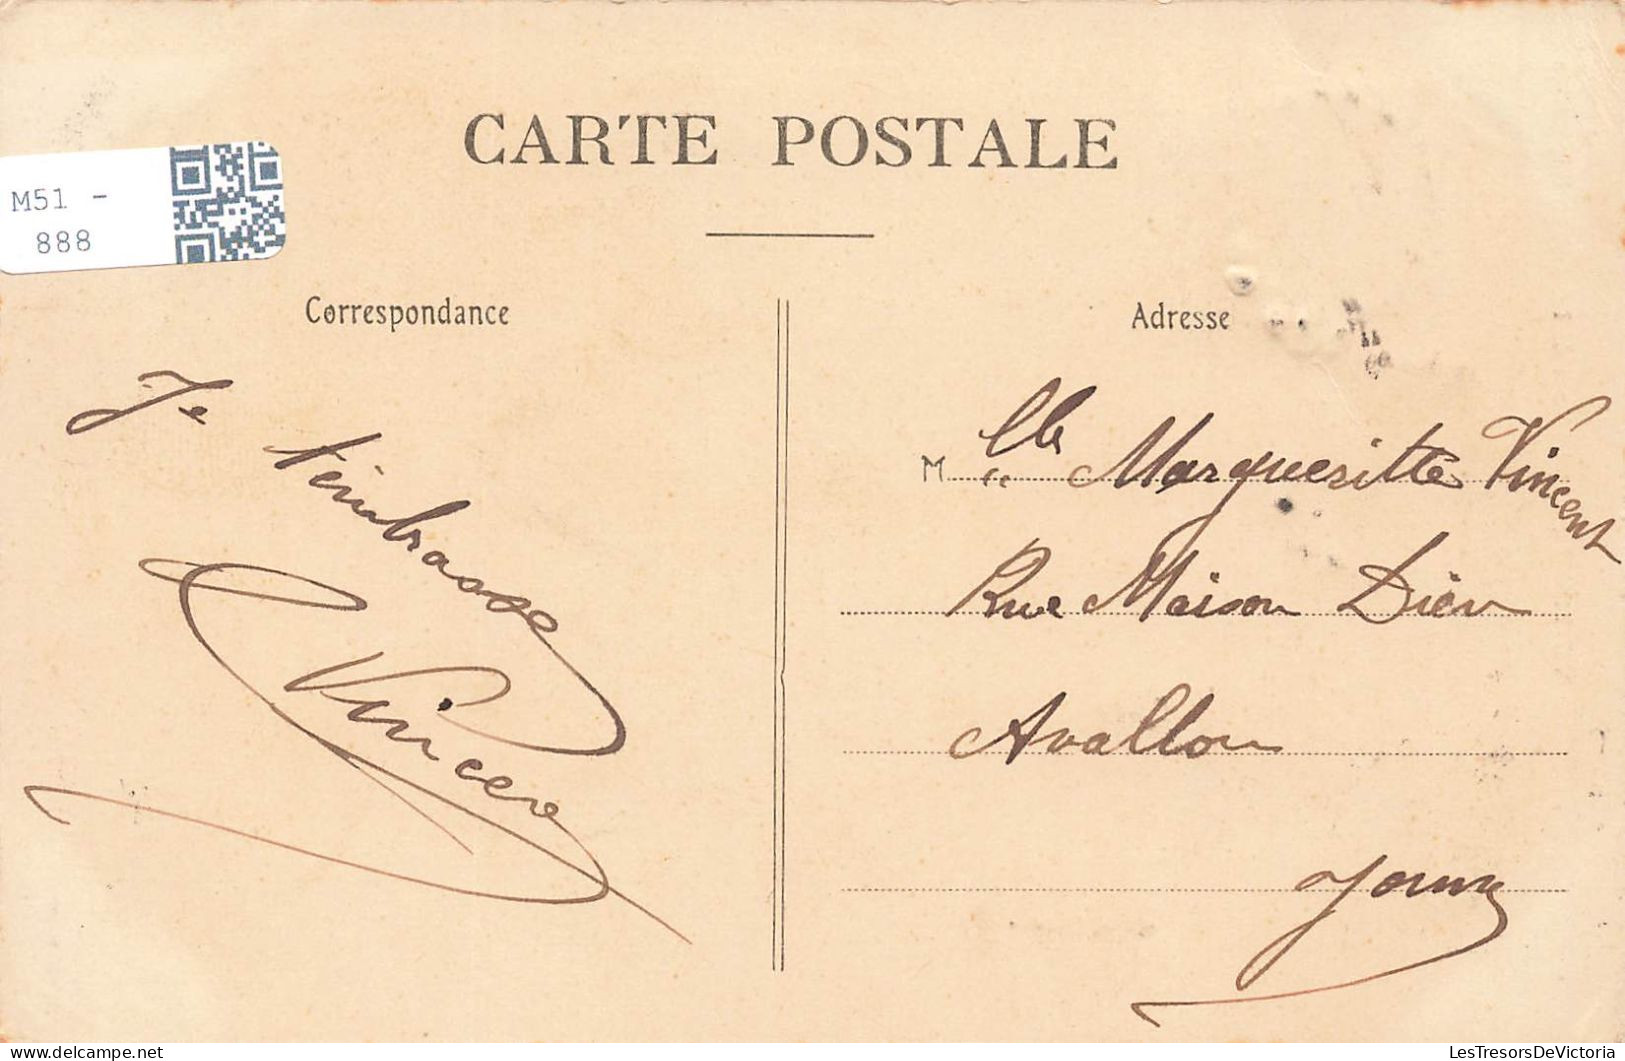 CARTE POSTALE
M51 -
888
Correspondance
Je
t'embrasse
Adresse
Mlle Margueritte Vincent
Rue Maison Dieu
Avallon
Yonne
LesTresorsDeVictoria